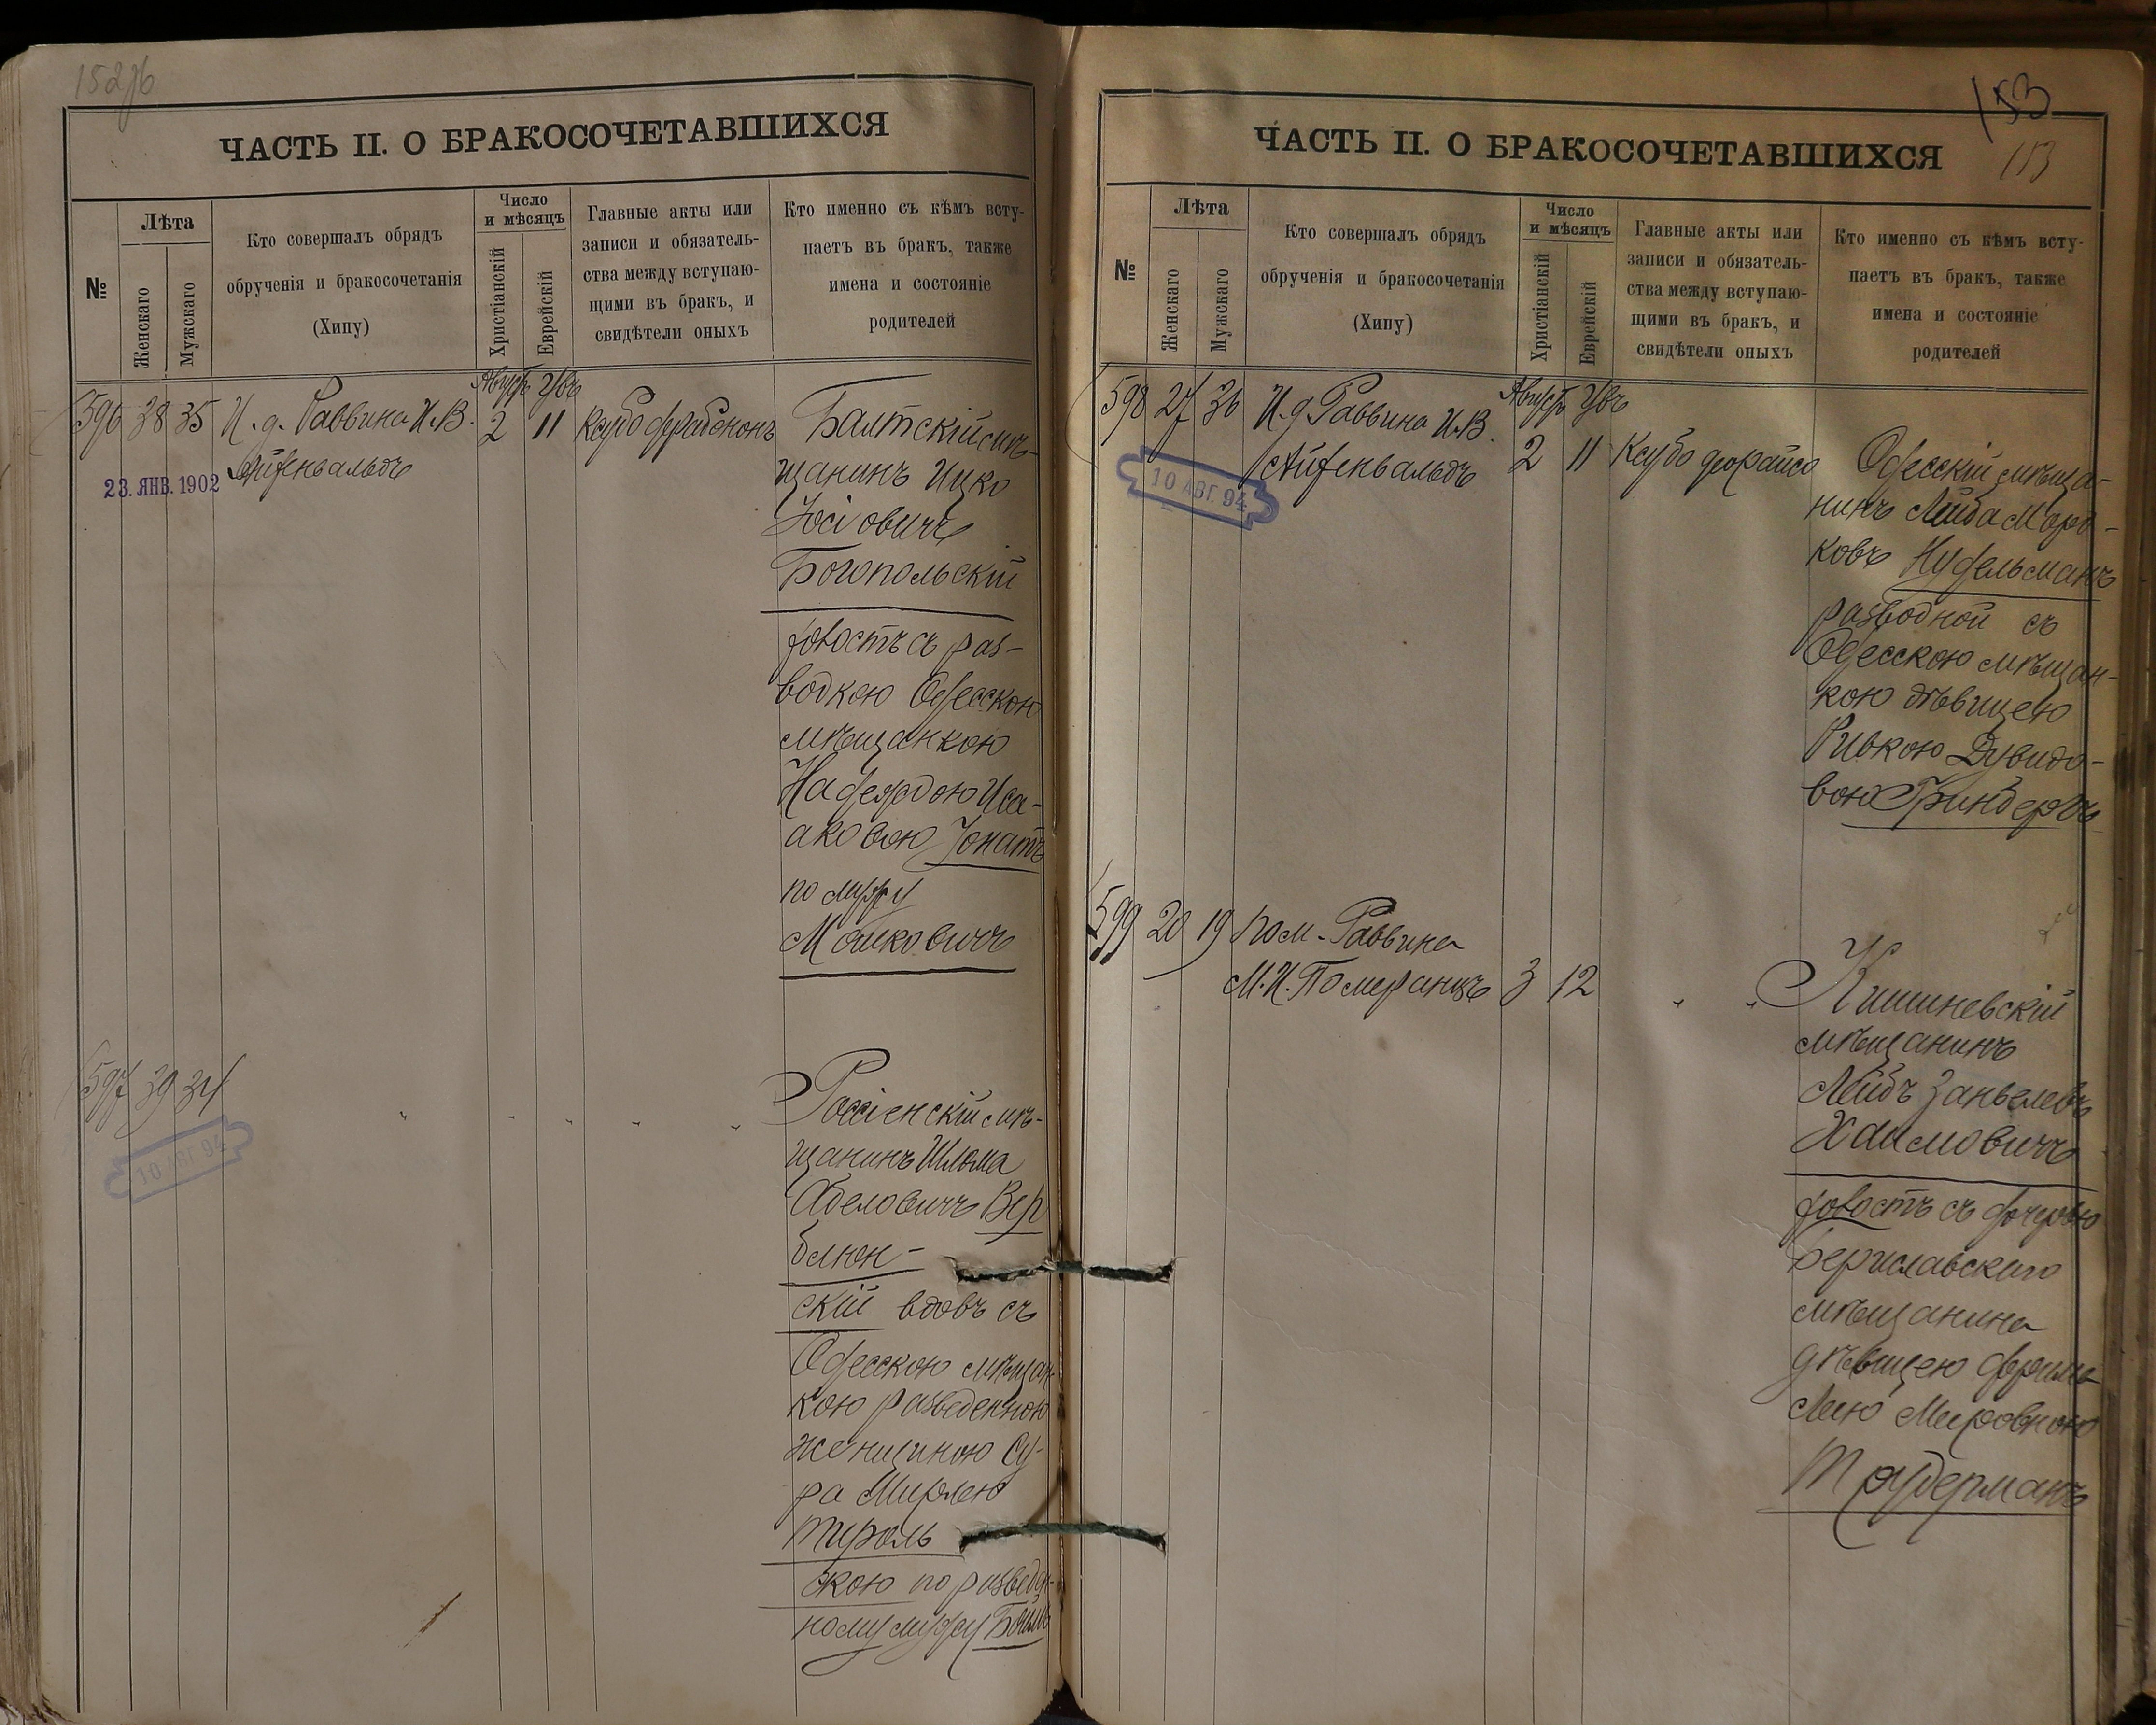 152об
ЧАСТЬ II. О БРАКОСОЧЕТАВШИХСЯ
№
Лѣта
Женскаго
Мужскаго
Кто совершалъ обрядъ
обрученія и бракосочетанія
(Хипу)
Число
и мѣсяцъ
Христіанскій
Еврейскій
Главные акты или
записи и обязатель-
ства между вступаю-
щими въ бракъ, и
свидѣтели оныхъ
Кто именно съ кѣмъ всту-
паетъ въ бракъ, также
имена и состояніе
родителей
Августъ
596 38 35 И. д. Раввина И. В. 2 11
Айзенвальдъ
23. ЯНВ. 1902
Балтскій мѣ-
щанинъ Ицко
Іосіовичъ
Богопольскій
холостъ съ раз-
водкою Одесскою
мѣщанкою
Исa-
аковою
по мужу
Мошковичъ
597 39 34 " " " " "
10 АВГ 94
Россіенскій мѣ-
щанинъ Шлома
Абеловичъ Вер
блюн-
скій вдовъ съ
Одесскою мѣщан-
кою разведенною
женщиною Су-
ра Мирлею
Тироль
скою по разведен-
ному мужу
153
153
ЧАСТЬ II. О БРАКОСОЧЕТАВШИХСЯ
№
Лѣта
Женскаго
Мужскаго
Кто совершалъ обрядъ
обрученія и бракосочетанія
(Хипу)
Число
и мѣсяцъ
Христіанскій
Еврейскій
Главные акты или
записи и обязатель-
ства между вступаю-
щими въ бракъ, и
свидѣтели оныхъ
Кто именно съ кѣмъ всту-
паетъ въ бракъ, также
имена и состояніе
родителей
Августъ
598 27 36 И. д. Раввина И. В.
Айзенвальдъ 2 11
10 АВГ. 94
Одесскій мѣща-
нинъ Лейба Морд-
ковъ Нудельманъ
разводной съ
Одесскою мѣщан-
кою дѣвицею
Ривкою Дувидо-
вою Гринбергъ
599 20 19 Пом. Раввина
М. И. Померанцъ 3 12 " "
Кишиневскій
мѣщанинъ
Лейбъ Занвелевъ
Хаимовичъ
холостъ съ дочерью
Бериславскаго
мѣщанина
дѣвицею
Лею Меировною
Трауберманъ